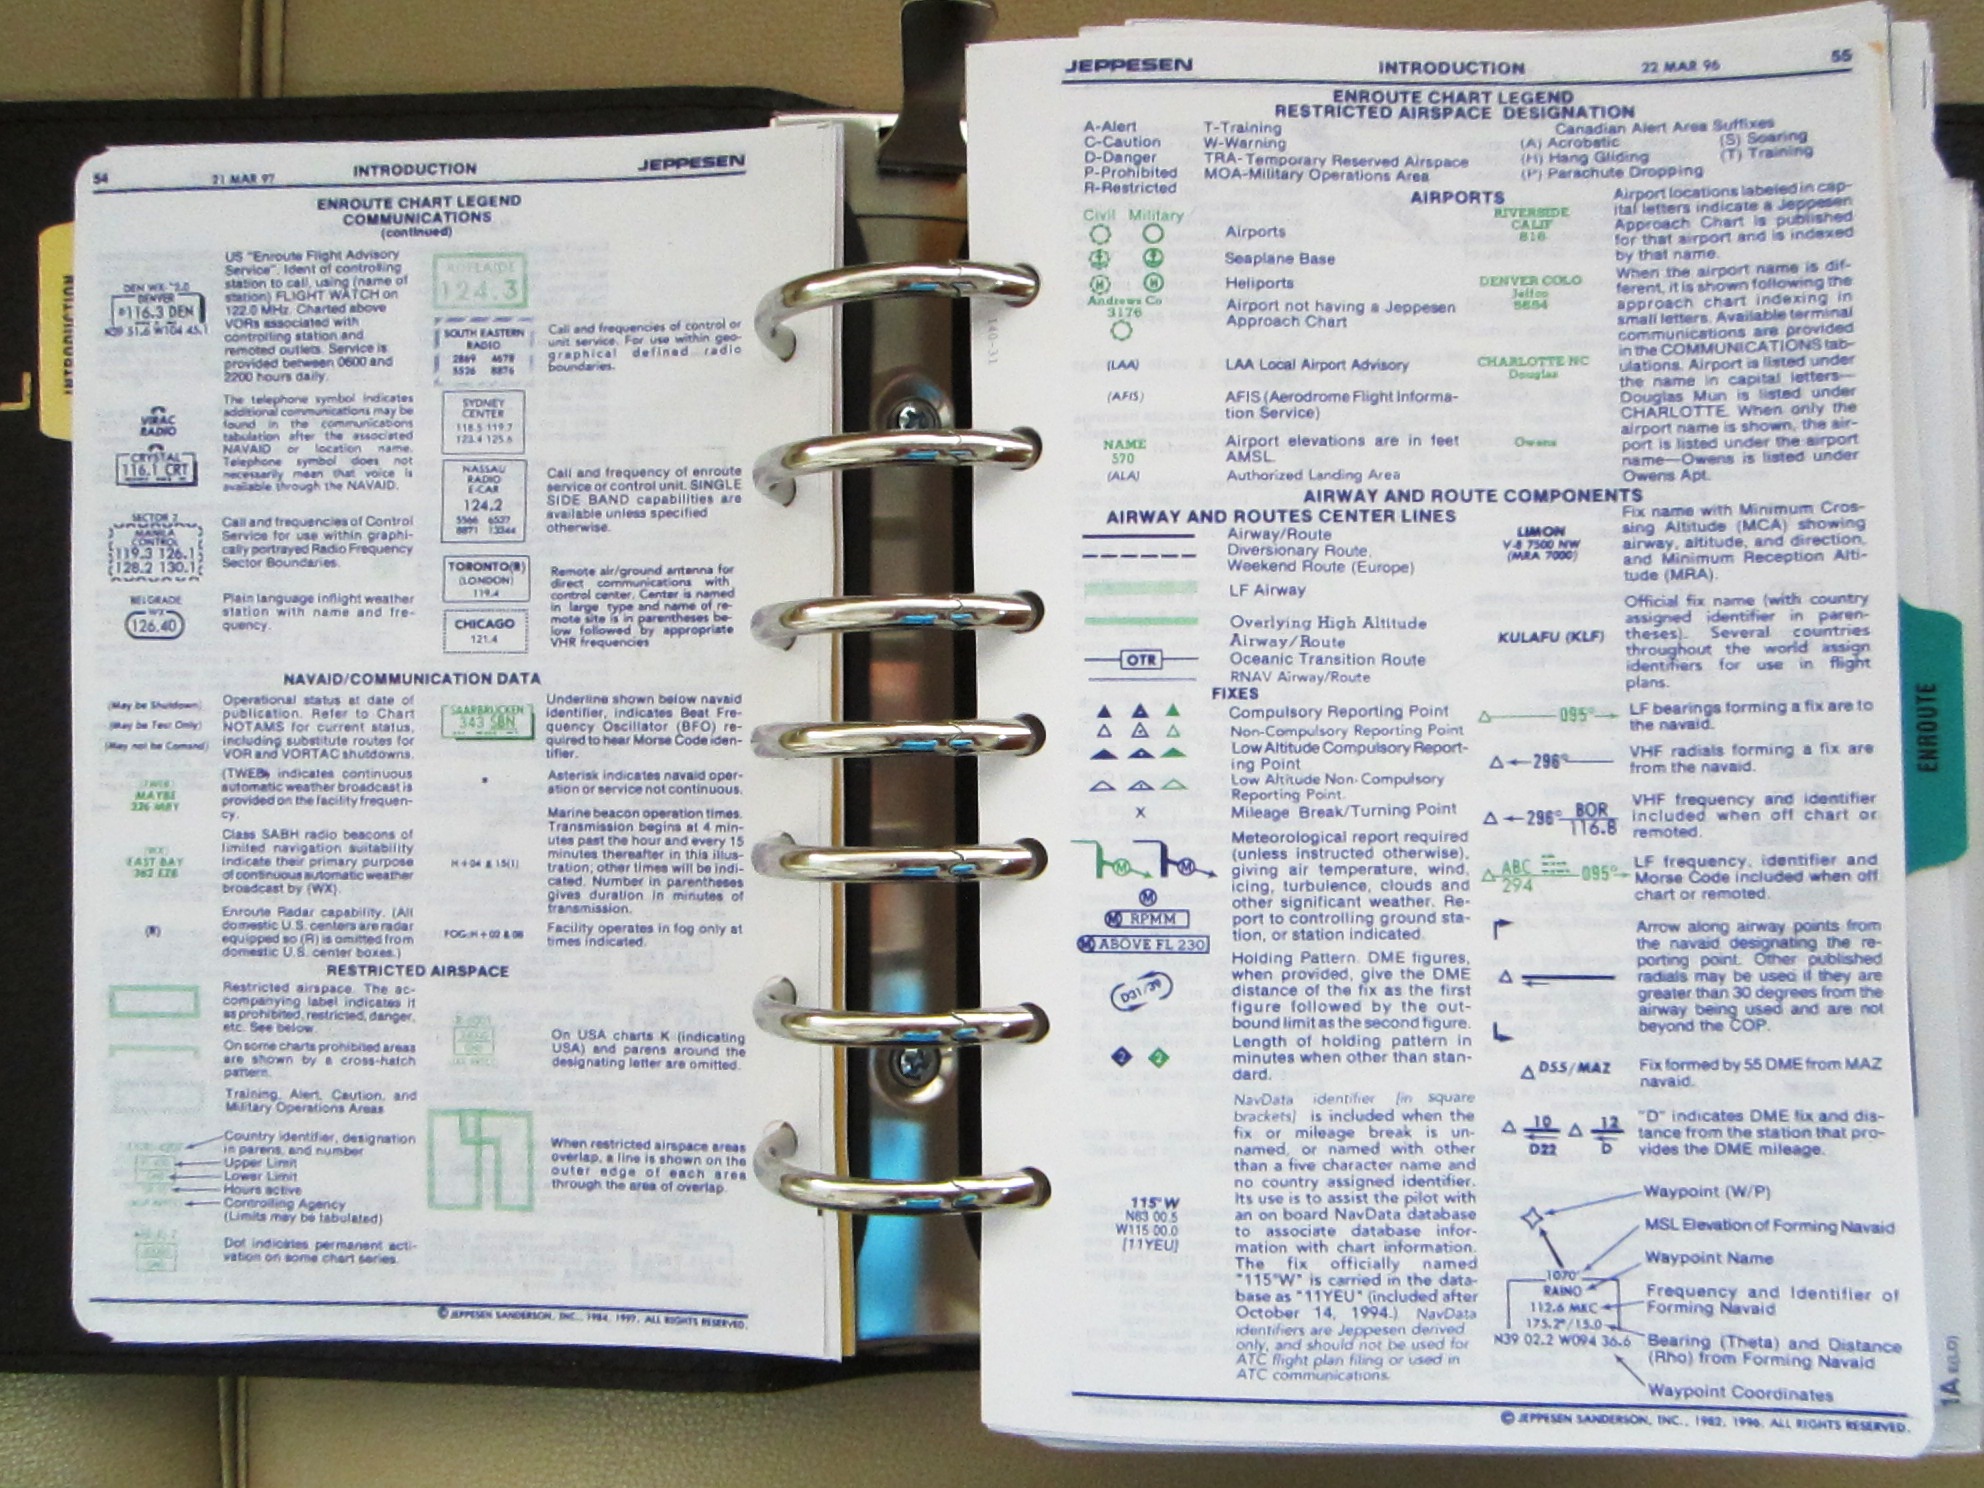 54
21 MAR 97
INTRODUCTION
JEPPESEN
ENROUTE CHART LEGEND
COMMUNICATIONS
(continued)
DENVER
116.3 DEN
US "Enroute Flight Advisory
Service". Ident of controlling
station to call, using (name of
station) FLIGHT WATCH on
122.0 MHz. Charted above
VORs associated with
controlling station and
remoted outlets. Service is
provided between 0600 and
2200 hours daily.
VIRAC
RADIO
CRYSTAL
116.1 CRT
The telephone symbol indicates
additional communications may be
found in the communications
tabulation after the associated
NAVAID or location name.
Telephone symbol does not
necessarily mean that voice is
available through the NAVAID.
SECTOR 2
MANILA
CONTROL
119.3 126.1
128.2 130.1
Call and frequencies of Control
Service for use within graphi-
cally portrayed Radio Frequency
Sector Boundaries.
BELGRADE
WX
126.40
Plain language inflight weather
station with name and fre-
quency.
ADELAIDE
124.3
SOUTH EASTERN
RADIO
2869 4678
5526 8876
Call and frequencies of control or
unit service. For use within geo-
graphical defined radio
boundaries.
SYDNEY
CENTER
118.5 119.7
123.4 125.6
NASSAU
RADIO
E-CAR
124.2
5566 6527
8871 13344
Call and frequency of enroute
service or control unit. SINGLE
SIDE BAND capabilities are
available unless specified
otherwise.
TORONTO(R)
(LONDON)
119.4
CHICAGO
121.4
Remote air/ground antenna for
direct communications with
control center. Center is named
in large type and name of re-
mote site is in parentheses be-
low followed by appropriate
VHR frequencies
NAVAID/COMMUNICATION DATA
(May be Shutdown)
(May be Test Only)
(May not be Comsnd)
Operational status at date of
publication. Refer to Chart
NOTAMS for current status,
including substitute routes for
VOR and VORTAC shutdowns.
(TWEB)
MAYBE
326 MBY
(TWEB) indicates continuous
automatic weather broadcast is
provided on the facility frequen-
cy.
(WX)
EAST BAY
362 EZB
Class SABH radio beacons of
limited navigation suitability
indicate their primary purpose
of continuous automatic weather
broadcast by (WX).
(R)
Enroute Radar capability. (All
domestic U.S. centers are radar
equipped so (R) is omitted from
domestic U.S. center boxes.)
SAARBRUCKEN
343 SBN
Underline shown below navaid
identifier, indicates Beat Fre-
quency Oscillator (BFO) re-
quired to hear Morse Code iden-
tifier.
*
Asterisk indicates navaid oper-
ation or service not continuous.
H+04 & 15(1)
Marine beacon operation times.
Transmission begins at 4 min-
utes past the hour and every 15
minutes thereafter in this illus-
tration; other times will be indi-
cated. Number in parentheses
gives duration in minutes of
transmission.
FOG:H+02 & 08
Facility operates in fog only at
times indicated.
RESTRICTED AIRSPACE
Restricted airspace. The ac-
companying label indicates it
as prohibited, restricted, danger,
etc. See below.
On some charts prohibited areas
are shown by a cross-hatch
pattern.
Training, Alert, Caution, and
Military Operations Areas
Country identifier, designation
in parens, and number
Upper Limit
Lower Limit
Hours active
Controlling Agency
(Limits may be tabulated)
Dot indicates permanent acti-
vation on some chart series.
On USA charts K (indicating
USA) and parens around the
designating letter are omitted.
When restricted airspace areas
overlap, a line is shown on the
outer edge of each area
through the area of overlap.
© JEPPESEN SANDERSON, INC., 1984, 1997. ALL RIGHTS RESERVED.
INTRODUCTION
JEPPESEN
INTRODUCTION
22 MAR 96
55
ENROUTE CHART LEGEND
RESTRICTED AIRSPACE DESIGNATION
A-Alert
C-Caution
D-Danger
P-Prohibited
R-Restricted
T-Training
W-Warning
TRA-Temporary Reserved Airspace
MOA-Military Operations Area
Canadian Alert Area Suffixes
(A) Acrobatic (S) Soaring
(H) Hang Gliding (T) Training
(P) Parachute Dropping
AIRPORTS
Civil Military
Airports
Seaplane Base
Heliports
Andrews Co
3176
Airport not having a Jeppesen
Approach Chart
(LAA)
LAA Local Airport Advisory
(AFIS)
AFIS (Aerodrome Flight Informa-
tion Service)
NAME
570
Airport elevations are in feet
AMSL.
(ALA)
Authorized Landing Area
RIVERSIDE
CALIF
816
Airport locations labeled in cap-
ital letters indicate a Jeppesen
Approach Chart is published
for that airport and is indexed
by that name.
DENVER COLO
Jeffco
CHARLOTTE NC
Douglas
Owens
When the airport name is dif-
ferent, it is shown following the
approach chart indexing in
small letters. Available terminal
communications are provided
in the COMMUNICATIONS tab-
ulations. Airport is listed under
the name in capital letters—
Douglas Mun is listed under
CHARLOTTE. When only the
airport name is shown, the air-
port is listed under the airport
name—Owens is listed under
Owens Apt.
AIRWAY AND ROUTE COMPONENTS
AIRWAY AND ROUTES CENTER LINES
Airway/Route
Diversionary Route,
Weekend Route (Europe)
LF Airway
Overlying High Altitude
Airway/Route
OTR
Oceanic Transition Route
RNAV Airway/Route
FIXES
Compulsory Reporting Point
Non-Compulsory Reporting Point
Low Altitude Compulsory Report-
ing Point
Low Altitude Non-Compulsory
Reporting Point.
X
Mileage Break/Turning Point
M M
M
M RPMM
M ABOVE FL 230
Meteorological report required
(unless instructed otherwise),
giving air temperature, wind,
icing, turbulence, clouds and
other significant weather. Re-
port to controlling ground sta-
tion, or station indicated.
D31/39
2 2
Holding Pattern. DME figures,
when provided, give the DME
distance of the fix as the first
figure followed by the out-
bound limit as the second figure.
Length of holding pattern in
minutes when other than stan-
dard.
115°W
N63 00.5
W115 00.0
[11YEU]
NavData identifier [in square
brackets] is included when the
fix or mileage break is un-
named, or named with other
than a five character name and
no country assigned identifier.
Its use is to assist the pilot with
an on board NavData database
to associate database infor-
mation with chart information.
The fix officially named
"115°W" is carried in the data-
base as "11YEU" (included after
October 14, 1994.) NavData
identifiers are Jeppesen derived
only, and should not be used for
ATC flight plan filing or used in
ATC communications.
LIMON
V-8 7500 NW
(MRA 7000)
Fix name with Minimum Cros-
sing Altitude (MCA) showing
airway, altitude, and direction,
and Minimum Reception Alti-
tude (MRA).
KULAFU (KLF)
Official fix name (with country
assigned identifier in paren-
theses). Several countries
throughout the world assign
identifiers for use in flight
plans.
095°
LF bearings forming a fix are to
the navaid.
296°
VHF radials forming a fix are
from the navaid.
296° BOR
116.8
VHF frequency and identifier
included when off chart or
remoted.
ABC
294
095°
LF frequency, identifier and
Morse Code included when off
chart or remoted.
Arrow along airway points from
the navaid designating the re-
porting point. Other published
radials may be used if they are
greater than 30 degrees from the
airway being used and are not
beyond the COP.
D55/MAZ
Fix formed by 55 DME from MAZ
navaid.
10 12
D22 D
"D" indicates DME fix and dis-
tance from the station that pro-
vides the DME mileage.
Waypoint (W/P)
MSL Elevation of Forming Navaid
Waypoint Name
1070'
RAINO
112.6 MKC
175.2°/15.0
N39 02.2 W094 36.6
Frequency and Identifier of
Forming Navaid
Bearing (Theta) and Distance
(Rho) from Forming Navaid
Waypoint Coordinates
© JEPPESEN SANDERSON, INC., 1982, 1996. ALL RIGHTS RESERVED.
ENROUTE